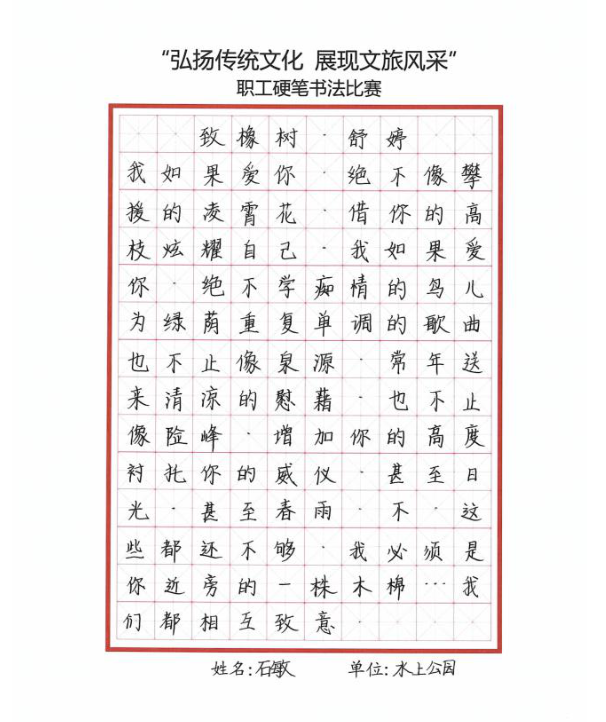 “弘扬传统文化 展现文旅风采”
职工硬笔书法比赛
致橡树·舒婷
我如果爱你·绝不像攀
援的凌霄花·借你的高
枝炫耀自己·我如果爱
你·绝不学痴情的鸟儿
为绿荫重复单调的歌曲
也不止像泉源·常年送
来清凉的慰藉·也不止
像险峰·增加你的高度
衬托你的威仪·甚至日
光·甚至春雨·不·这
些都还不够·我必须是
你近旁的一株木棉…我
们都相互致意·
姓名:石敏 单位:水上公园